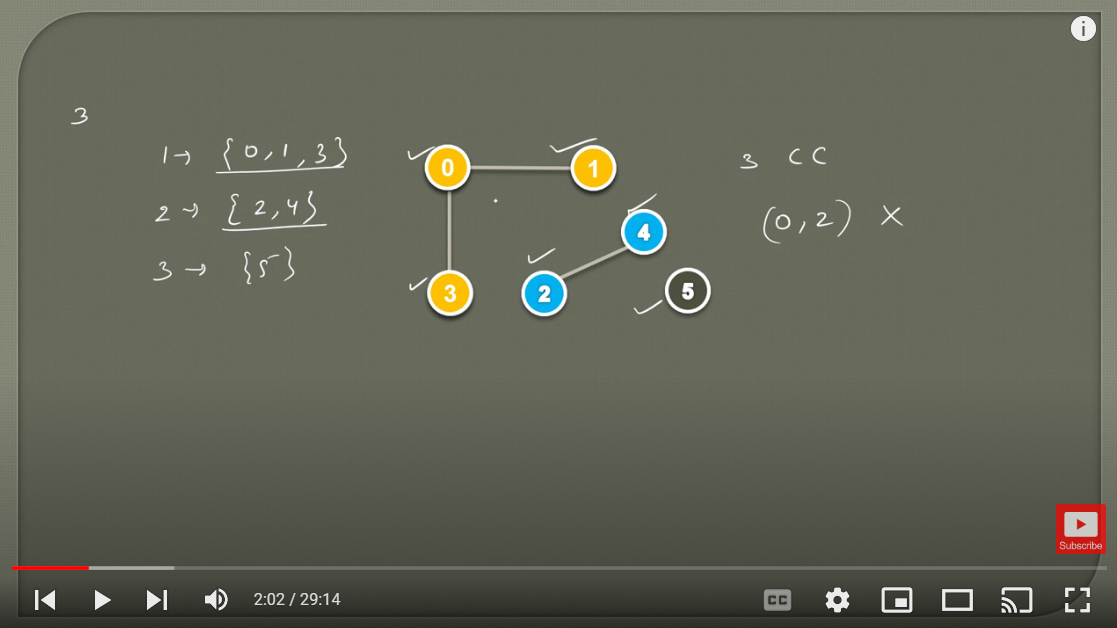 3
1 → {0, 1, 3}
2 → {2, 4}
3 → {5}
0
1
4
3
2
5
3 CC
(0, 2) X
Subscribe
2:02 / 29:14
CC